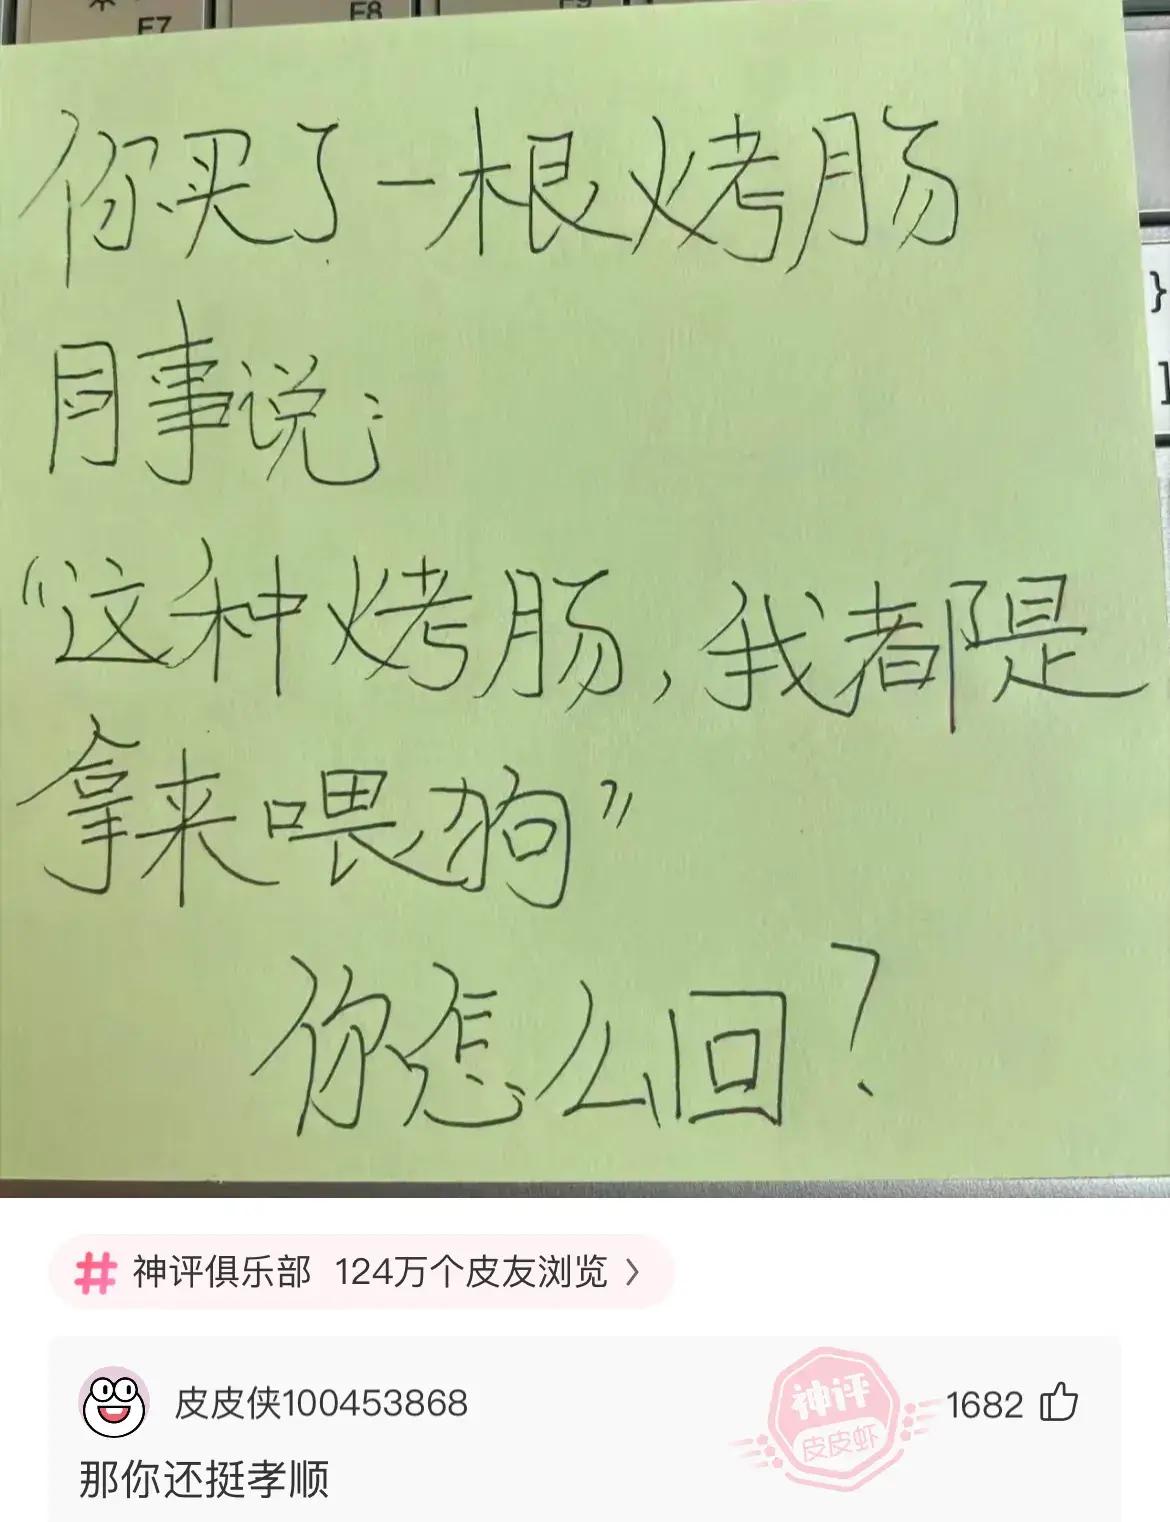 F7
F8
F9
}
]
你买了一根烤肠
同事说:
“这种烤肠,我都是
拿来喂狗”
你怎么回?
# 神评俱乐部 124万个皮友浏览 >
皮皮侠100453868
神评
皮皮虾
1682
那你还挺孝顺